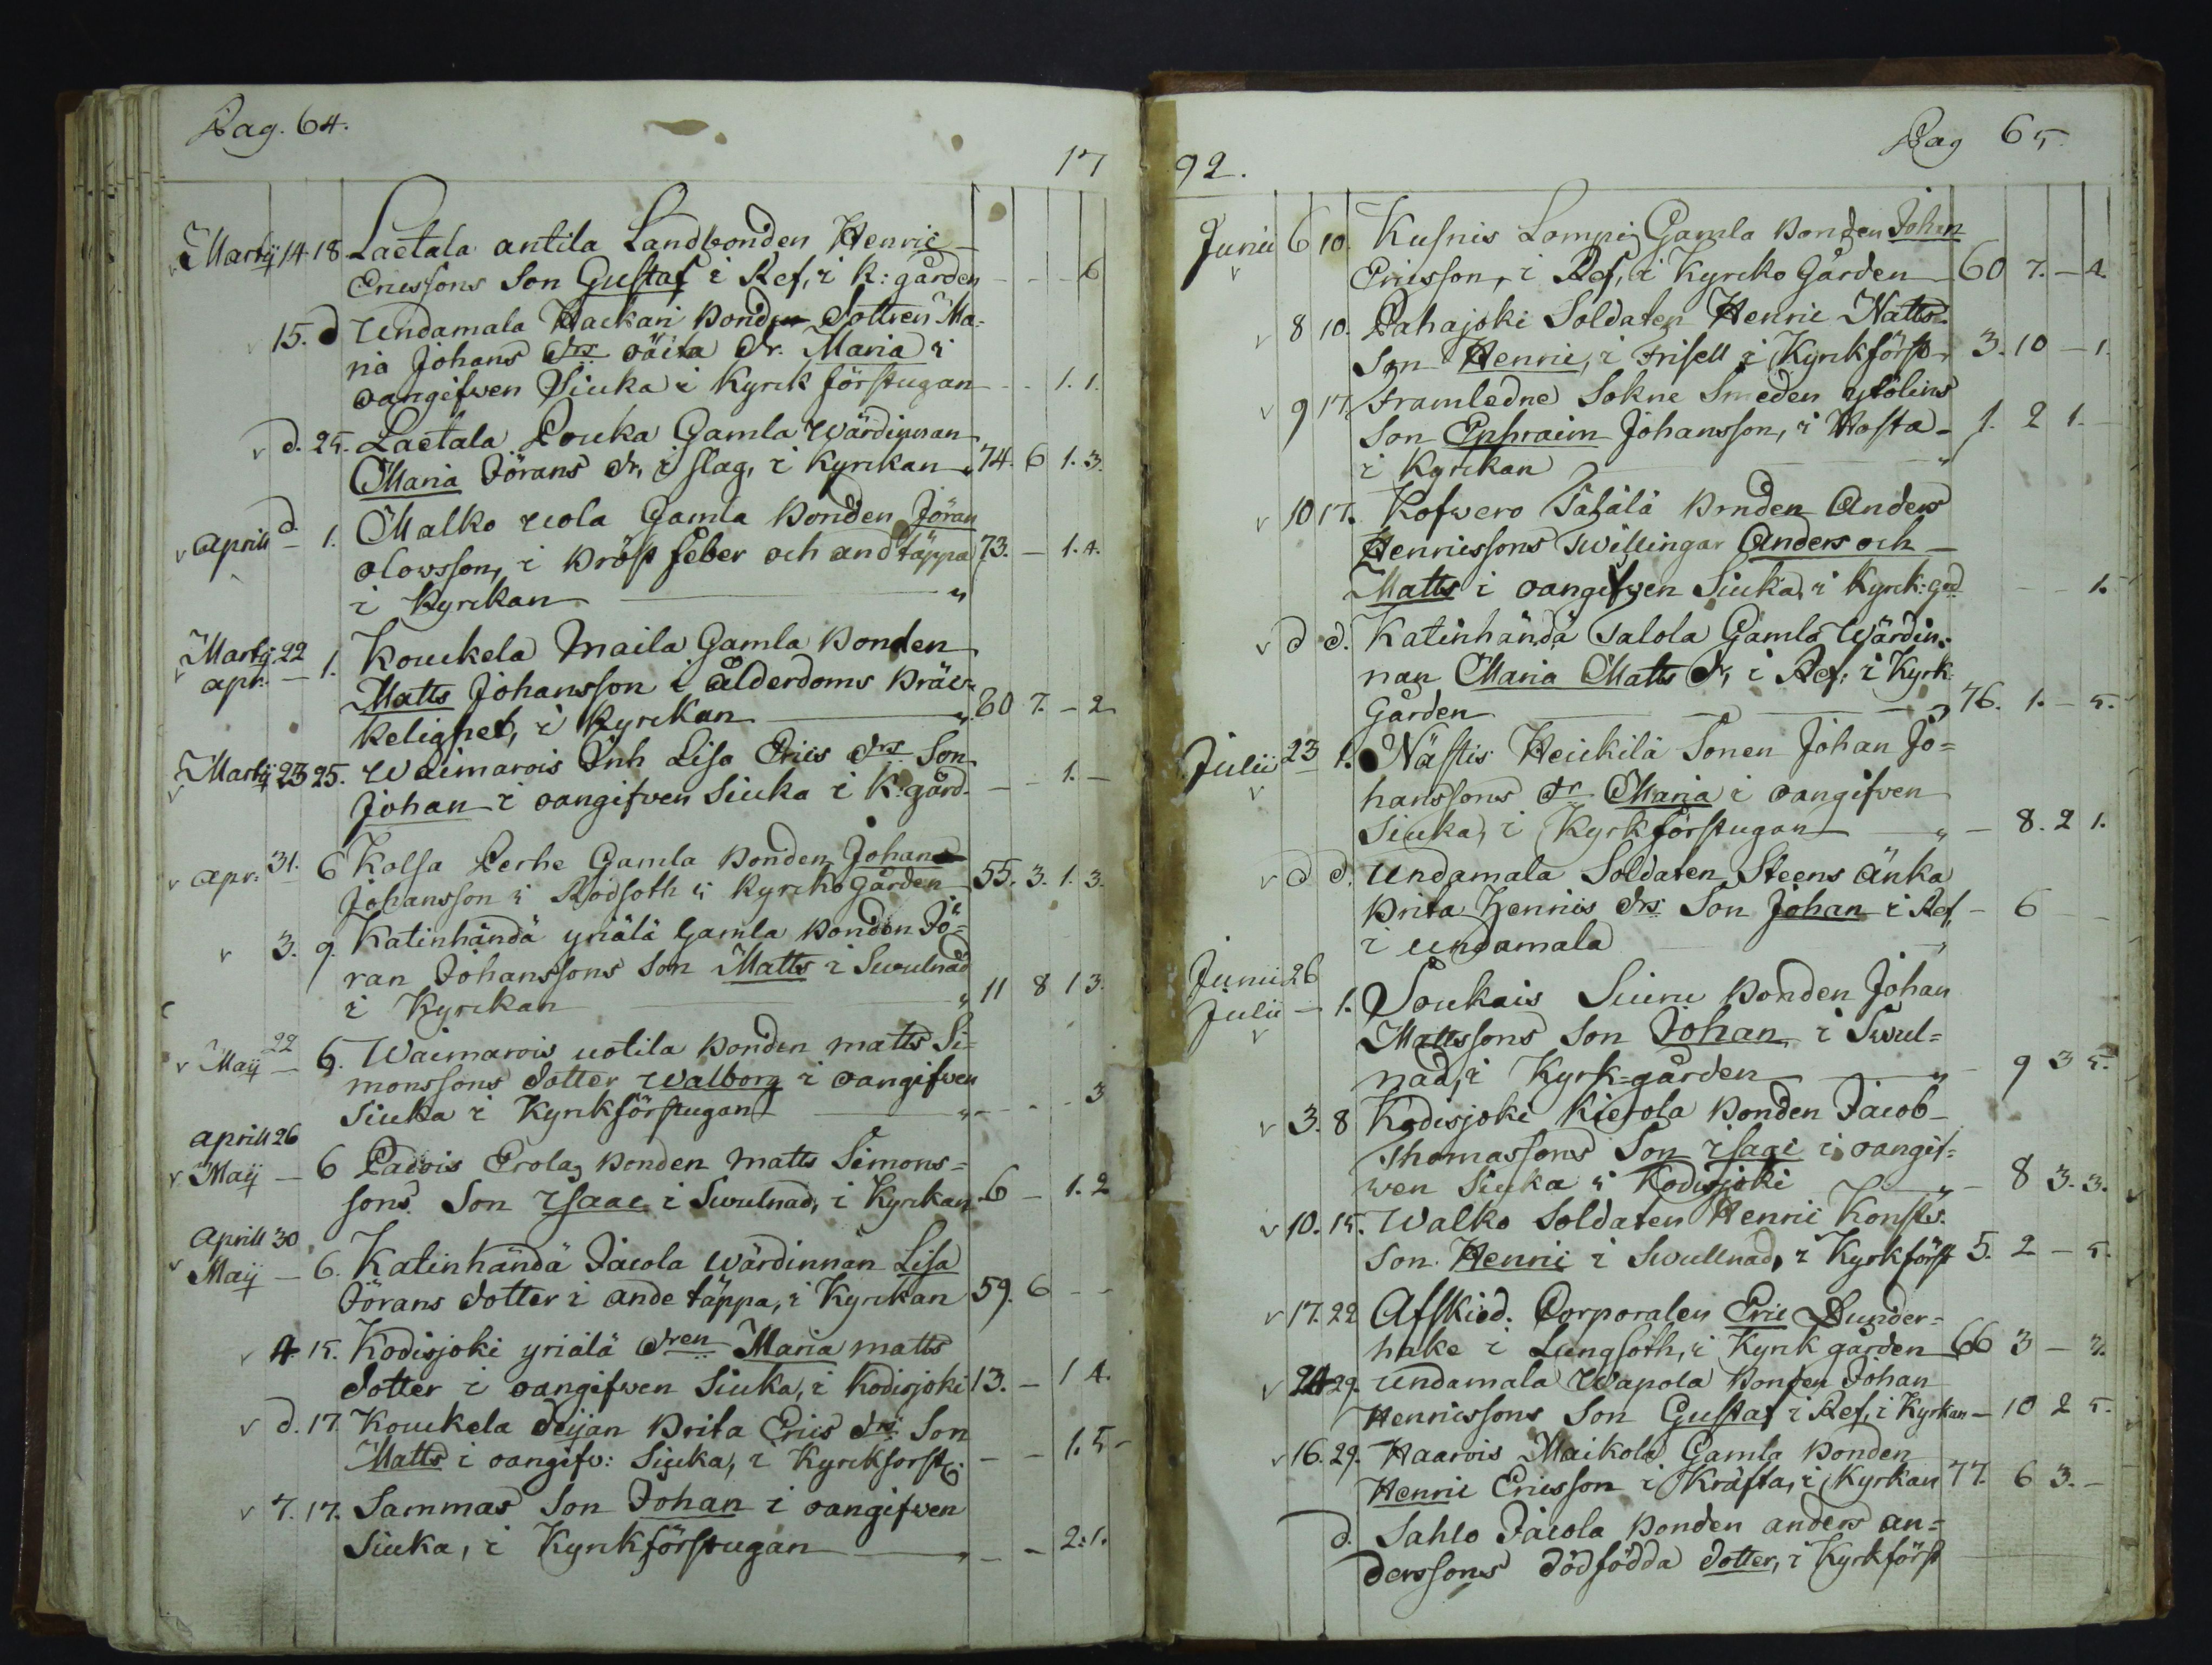 Pag. 64.
17
Martij 14. 18 Laetala antila Landbonden Henric
Ericssons Son Gustaf i Ref, i K: gården - - - 6
15. d Undamala Hackari bonde Dottren Ma-
ria Johans drs oäkta dr. Maria i
oangifwen Siuka i Kyrck förstugan - - 1. 1.
d. 25. Laetala Pouka Gamla Wärdinnan
Maria Jörans dr, i slag, i Kyrckan 74. 6 1. 3.
Aprill d 1. Malko uola Gamla bonden Jöran
olowsson, i bröst feber och andtäppa 73. - 1. 4.
i Kyrckan
Martij 22
apr. - 1. Kouckela Maila Gamla bonden
Matts Johansson i ålderdoms bräc-
kelighet, i Kyrckan 80 7. - 2
Martij 23 25. Waimarois Inh Lisa Erics drs Son
Johan i oangifven Siuka i K: gård. - - 1. -
apr. 31. 6 Kolsa Perhe Gamla bonden Johan
Johansson i Rödsoth i Kyrcko gården 55. 3. 1. 3.
3. 9. Katinhändä yriälä Gamla bonden Jö-
ran Johanssons Son Matts i Swulnad
i Kyrckan 11 8 1 3.
22
Maij - 6. Waimarois uotila bonden matts Si-
monssons dotter Walborg i oangifwen
Siuka i Kyrckförstugan - - - 3
aprill 26
Maij - 6 Padois Erola bonden Matts Simons-
sons Son Isaac i Swulnad, i Kyrckan 6 - 1. 2
Aprill 30
Maij - 6. Katinhändä Jacola wärdinnan Lisa
Jörans dotter i ande täppa, i Kyrckan 59. 6 - -
4. 15. Kodisjoki yriälä dren Maria matts
dotter i oangifwen Siuka, i Kodisjoki 13. - 1 4.
d. 17. Kouckela deijan Brita Erics drs Son
Matts i oangifw: Siuka, i Kyrckforst. - - 1. 5 -
7. 17. Sammas Son Johan i oangifwen
Siuka, i Kyrckförstugan - - 2. 1.
Pag 65
92.
Junii 6 10. Kusnis Lompi Gamla bonden Johan
Ericsson, i Ref, i Kyrcko Gården 60 7. - 4.
8 10. Pahajoki Soldaten Henric Natts
Son Henric, i Frisell i Kyrckförst 3. 10 - 1.
9 17. Framledne Sokne Smeden
Son Ephraim Johansson, i Hosta 1. 2 1. -
i Kyrckan
10 17. Kofwero Tatälä Bonden Anders
Henricssons Twillingar Anders och
Matts i oangifwen Siuka, i Kyrck: gd - - 1.
d d. Katinhändä Talola Gamla Wärdin-
nan Maria Matts dr, i Ref: i Kyrk
Gården 76. 1. - 5.
Julii 23 1. Nästis Heickilä Sonen Johan Jo-
hanssons dr Maria i oangifven
Siuka, i Kyrkförstugan - 8. 2 1.
d d. Undamala Soldaten Steens änka
Brita Henrics drs Son Johan i Ref, - 6 - -
i undamala
Junii 26
Julii - 1. Soukais Siuru bonden Johan
Mattssons Son Johan i Swul-
nad, i Kyrk-gården - 9 3 5.
3. 8 Kodisjoki Kierola bonden Jacob
Thomassons Son Isaac i oangif-
wen Siuka i Kodisjoki - 8 3. 3.
10. 15. Walko Soldaten Henric Konsts
Son Henric i Swullnad, i Kyrkförst 5. 2 - 5.
17. 22 Afskied. Corporalen Eric Dunder-
hake i Lungsoth, i Kyrck gården 66 3 - 3.
24 29. Undamala Wapola bonden Johan
Henricssons Son Gustaf i Ref, i Kyrkan - 10 2 5.
16. 29. Haarois Maikola Gamla bonden
Henric Ericsson i Kräfta, i Kyrkan 77. 6 3. -
d. Sahlo Jacola bonden anders an-
derssons dödfödda dotter, i Kyrkförst